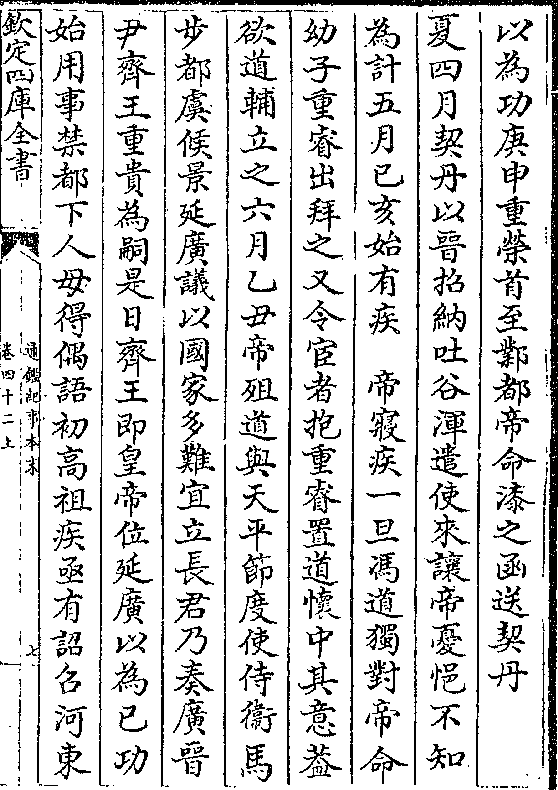 以為功庚申重榮首至鄴都帝命漆之函送契丹
夏四月契丹以晉招納吐谷渾遣使來讓帝憂悒不知
為計五月已亥始有疾　帝寢疾一旦馮道獨對帝命
幼子重睿出拜之又令宦者抱重睿置道懷中其意葢
欲道輔立之六月乙丑帝殂道與天平節度使侍衞馬
步都虞候景延廣議以國家多難宜立長君乃奏廣晉
尹齊王重貴為嗣是日齊王即皇帝位延廣以為已功
始用事禁都下人毋得偶語初高祖疾亟有詔召河東
欽定四庫全書
通鑑紀事本末
卷四十二上
七